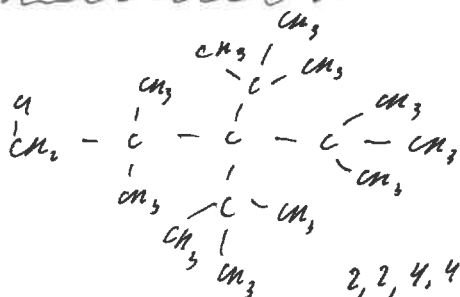 CH₃
CH₃ CH₃
C
CH₃
CH₂ - C - C - C - CH₃
CH₃
CH₃
CH₃
C - CH₃
CH₃
CH₃
2, 2, 4, 4